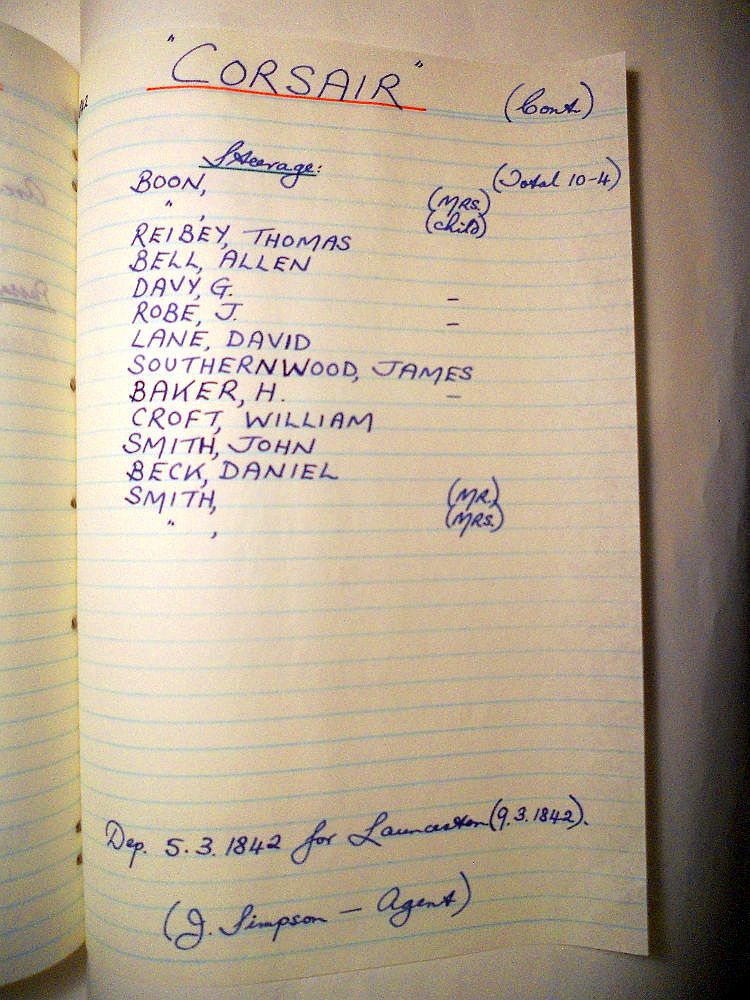 "CORSAIR"
(Cont)
Steerage:
(Total 10-4)
BOON, (MRS.)
" , (Child)
REIBEY, THOMAS
BELL, ALLEN
DAVY, G. -
ROBE, J. -
LANE, DAVID
SOUTHERNWOOD, JAMES
BAKER, H. -
CROFT, WILLIAM
SMITH, JOHN
BECK, DANIEL
SMITH, (MR.)
" , (MRS.)
Dep. 5.3.1842 for Launceston (9.3.1842).
(J. Simpson - Agent)